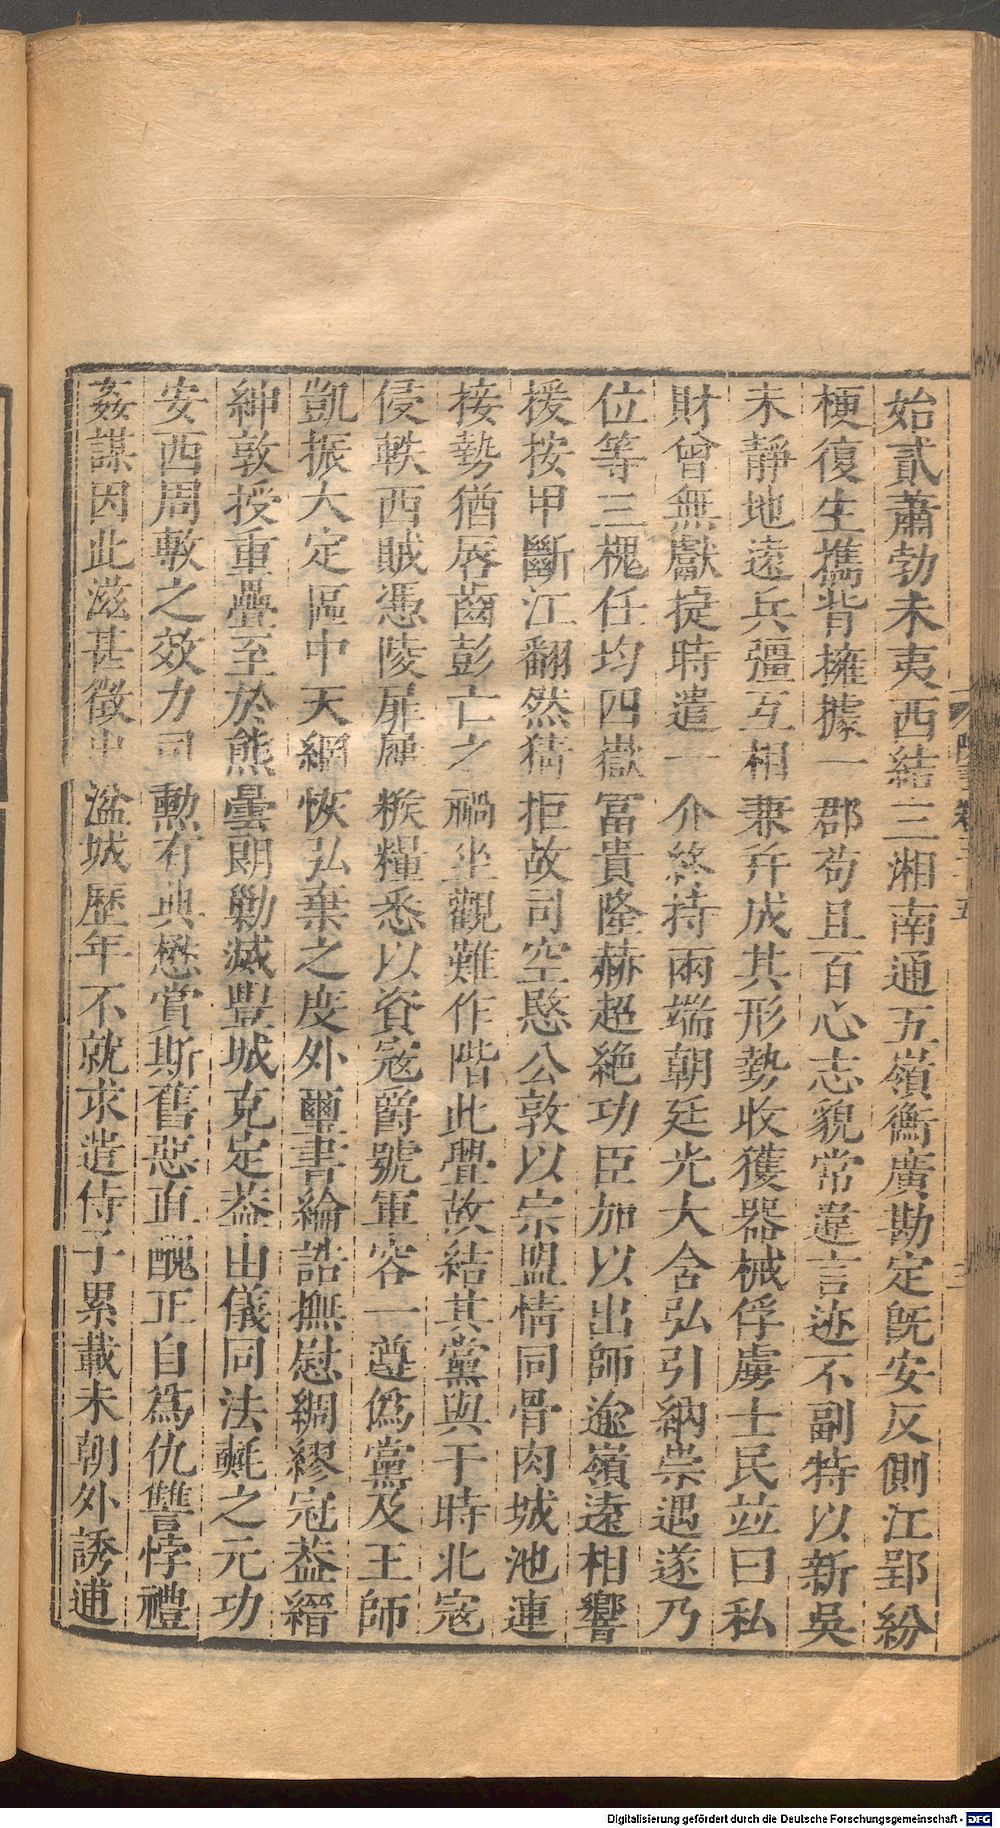 始貳蕭勃未夷西結三湘南通五嶺衡廣勘定旣安反側江郢紛
梗復生攜背擁據一郡苟且百心志貌常違言迹不副特以新吳
未靜地遠兵彊互相兼幷成其形勢收獲器械俘虜士民竝曰私
財曾無獻捷時遣一介終持兩端朝廷光大含弘引納崇遇遂乃
位等三槐任均四嶽富貴隆赫超絶功臣加以出師逾嶺遠相響
援按甲斷江翻然猜拒故司空愍公敦以宗盟情同骨肉城池連
接勢猶脣齒彭亡之禍坐觀難作階此釁故結其黨與于時北寇
侵軼西賊憑陵扉屨糇糧悉以資寇爵號軍容一遵僞黨及王師
凱振大定區中天網恢弘棄之度外璽書綸誥撫慰綢繆冠葢縉
紳敦授重疊至於熊曇朗勦滅豐城克定葢由儀同法𣰰之元功
安西周敷之效力司勳有典懋賞斯舊惡直醜正自爲仇讐悖禮
姦謀因此滋甚徵出湓城歷年不就求遣侍子累載未朝外誘逋
陳書卷三十五
三
Digitalisierung gefördert durch die Deutsche Forschungsgemeinschaft - DFG